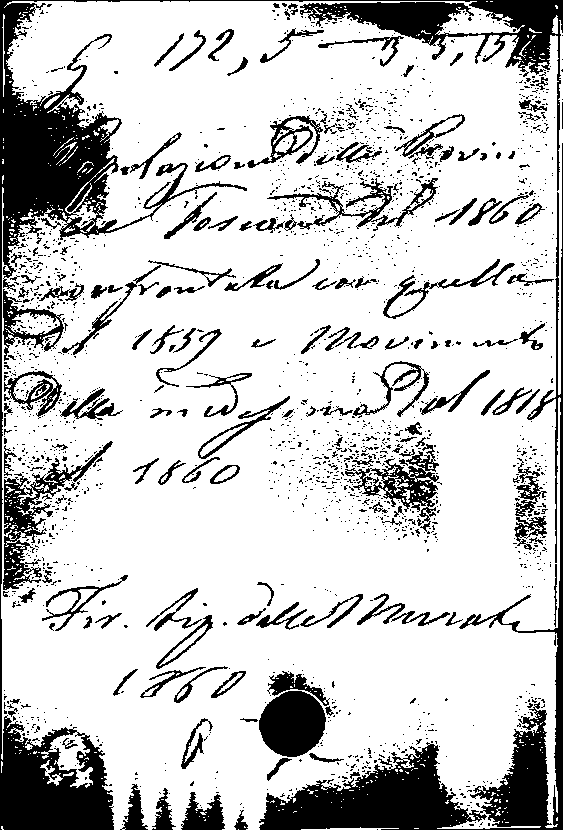 G. 172, 5 — 3, 3, 15,
Popolazione delle Provin-
cie Toscane del 1860
confrontata con quella
del 1859 e Movimento
della medesima dal 1818
al 1860
Fir. tip. delle Murate
1860